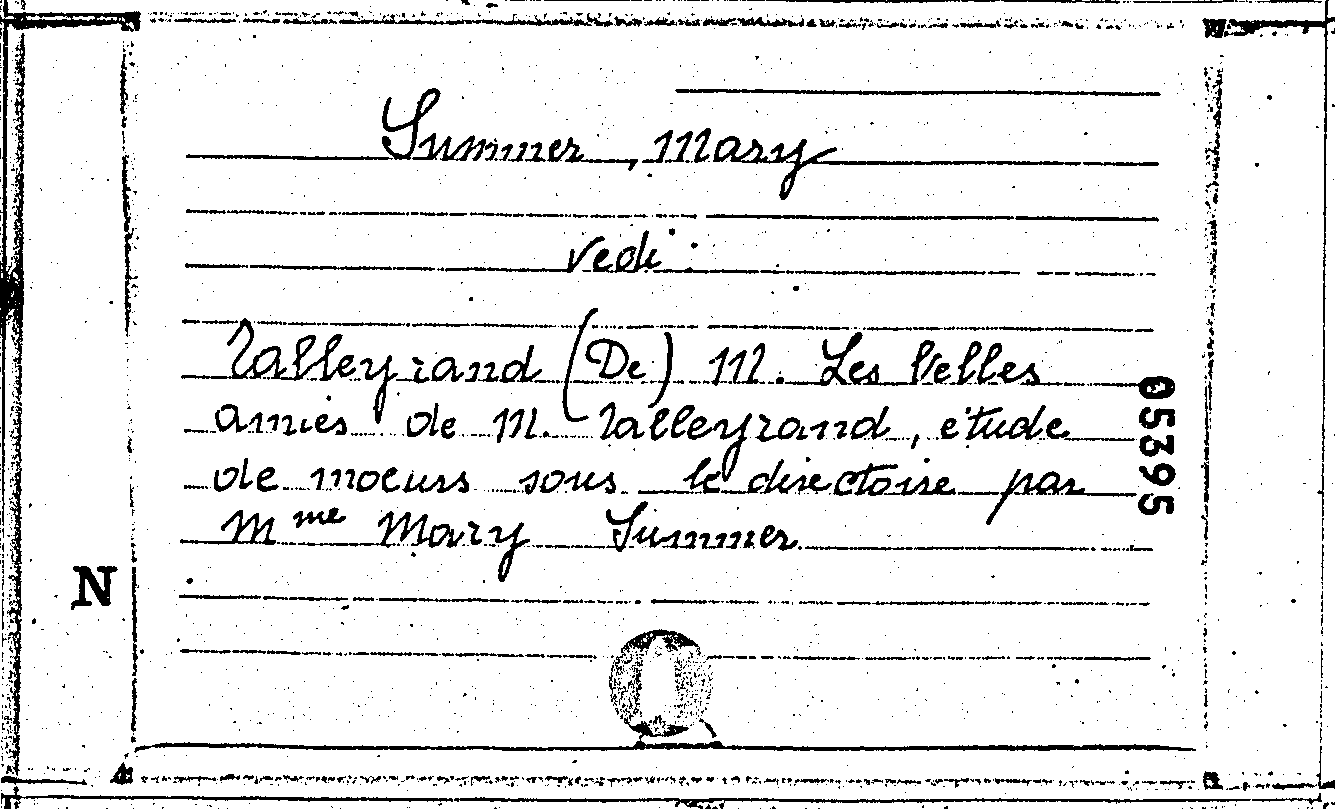 Summer, Mary
vedi:
Talleyrand (De) M. Les belles
amies de M. Talleyrand, étude
de moeurs sous le directoire par
Mme Mary Summer
05395
N